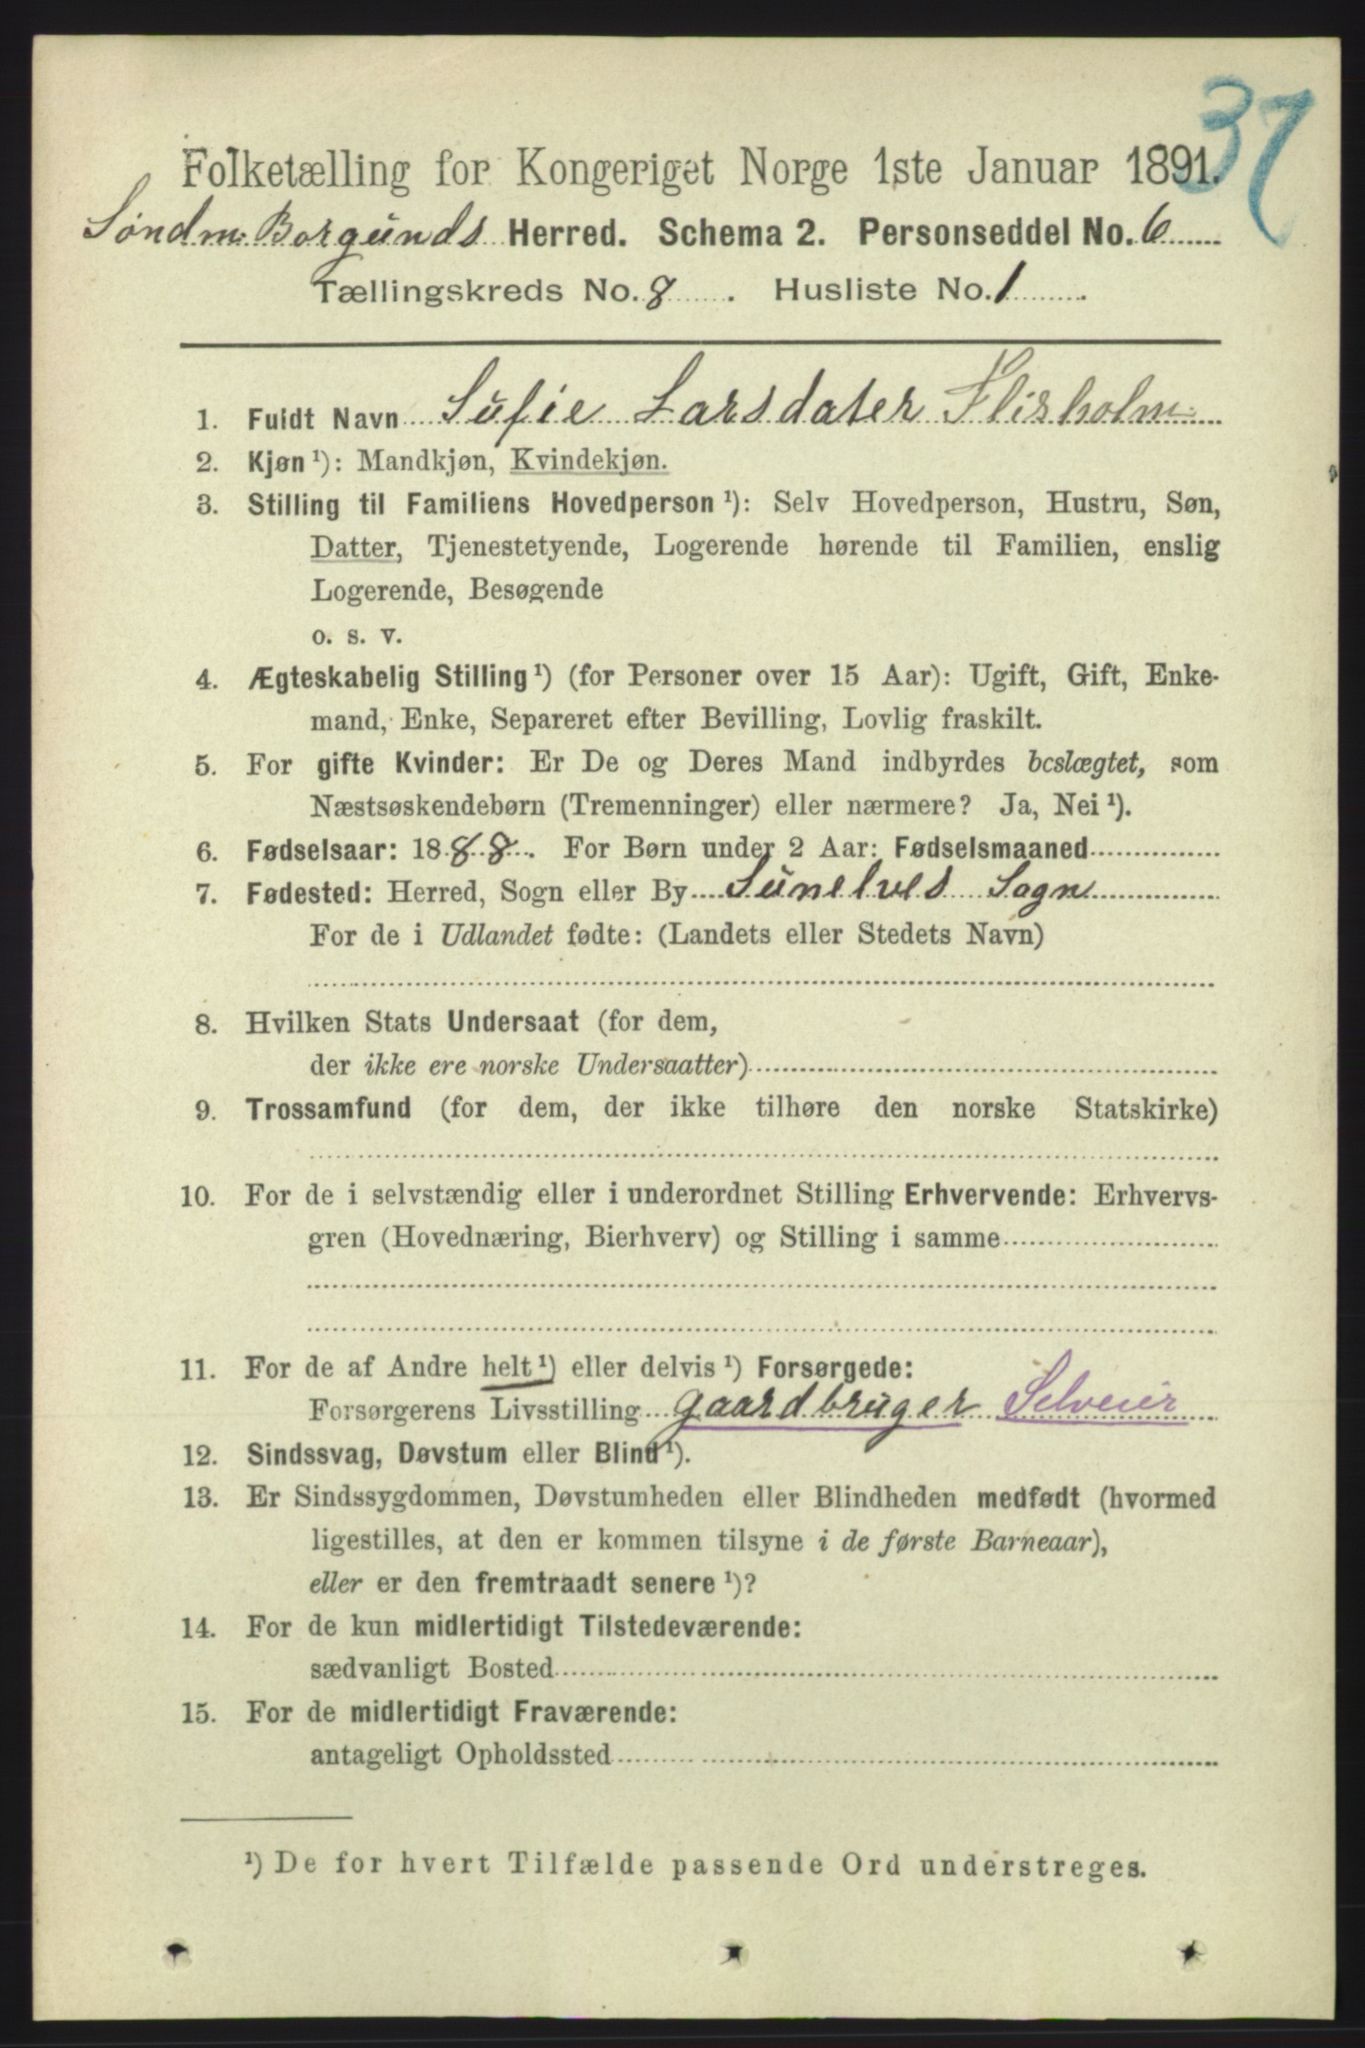 37
Folketælling for Kongeriget Norge 1ste Januar 1891.
Søndm. Borgunds Herred. Schema 2. Personseddel No. 6
Tællingskreds No. 8. Husliste No. 1.
1. Fuldt Navn Sufie Larsdater Flisholm
2. Kjøn ¹): Mandkjøn, Kvindekjøn.
3. Stilling til Familiens Hovedperson ¹): Selv Hovedperson, Hustru, Søn,
Datter, Tjenestetyende, Logerende hørende til Familien, enslig
Logerende, Besøgende
o. s. v.
4. Ægteskabelig Stilling ¹) (for Personer over 15 Aar): Ugift, Gift, Enke-
mand, Enke, Separeret efter Bevilling, Lovlig fraskilt.
5. For gifte Kvinder: Er De og Deres Mand indbyrdes beslægtet, som
Næstsøskendebørn (Tremenninger) eller nærmere? Ja, Nei ¹).
6. Fødselsaar: 1888. For Børn under 2 Aar: Fødselsmaaned
7. Fødested: Herred, Sogn eller By Sunelves Sogn
For de i Udlandet fødte: (Landets eller Stedets Navn)
8. Hvilken Stats Undersaat (for dem,
der ikke ere norske Undersaatter)
9. Trossamfund (for dem, der ikke tilhøre den norske Statskirke)
10. For de i selvstændig eller i underordnet Stilling Erhvervende: Erhvervs-
gren (Hovednæring, Bierhverv) og Stilling i samme
11. For de af Andre helt ¹) eller delvis ¹) Forsørgede:
Forsørgerens Livsstilling gaardbruger Selveier
12. Sindssvag, Døvstum eller Blind ¹).
13. Er Sindssygdommen, Døvstumheden eller Blindheden medfødt (hvormed
ligestilles, at den er kommen tilsyne i de første Barneaar),
eller er den fremtraadt senere ¹)?
14. For de kun midlertidigt Tilstedeværende:
sædvanligt Bosted
15. For de midlertidigt Fraværende:
antageligt Opholdssted
¹) De for hvert Tilfælde passende Ord understreges.